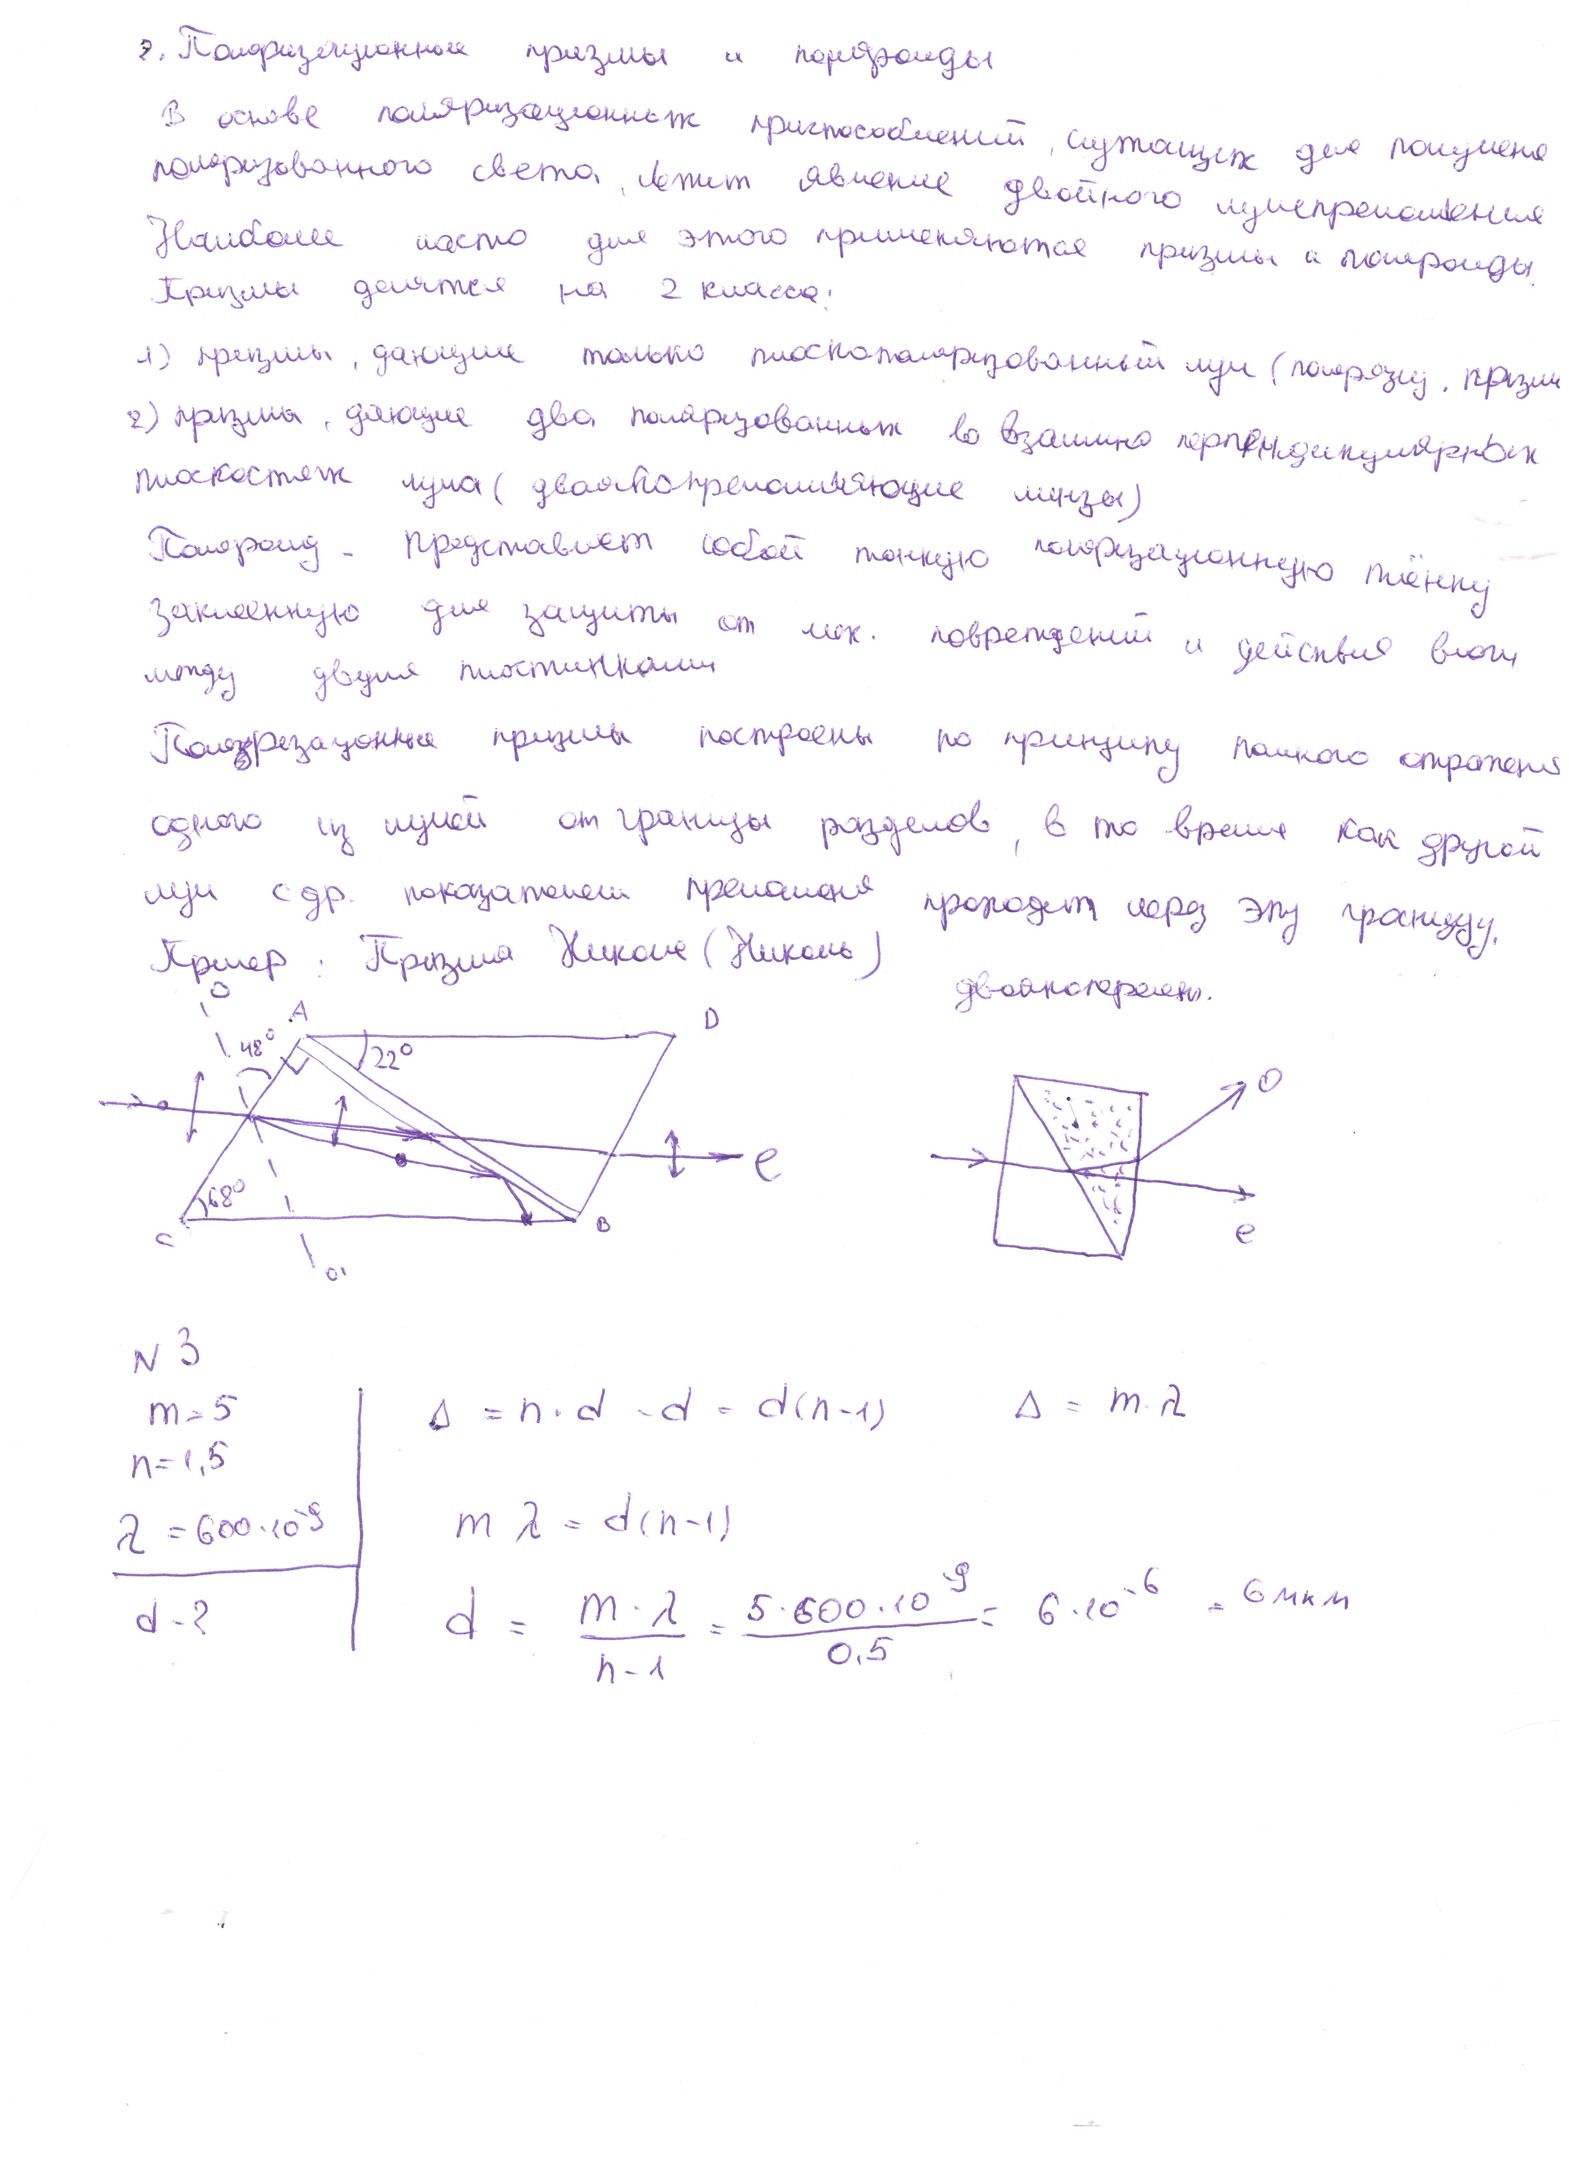 2. Поляризационные призмы и поляроиды
В основе поляризационных приспособлений, служащих для получения
поляризованного света, лежит явление двойного лучепреломления
Наиболее часто для этого применяются призмы и поляроиды.
Призмы делятся на 2 класса:
1) призмы, дающие только плоскополяризованный луч (поляризац. призмы
2) призмы, дающие два поляризованных во взаимно перпендикулярных
плоскостях луча (двоякопреломляющие линзы)
Поляроид - представляет собой тонкую поляризационную плёнку
заклеенную для защиты от мех. повреждений и действия влаги
между двумя пластинками
Поляризационные призмы построены по принципу полного отражения
одного из лучей от границы разделов, в то время как другой
луч с др. показателем преломления проходит через эту границу.
Пример: Призма Николя (Николь)
двоякопрелом.
O
A
D
48°
22°
O
e
68°
C
B
O'
e
N 3
m = 5
Δ = n · d - d = d(n-1)
Δ = m · λ
n = 1,5
λ = 600·10⁻⁹
m λ = d(n-1)
d - ?
d = m · λ / n - 1 = 5·600·10⁻⁹ / 0,5 = 6·10⁻⁶ = 6 мкм